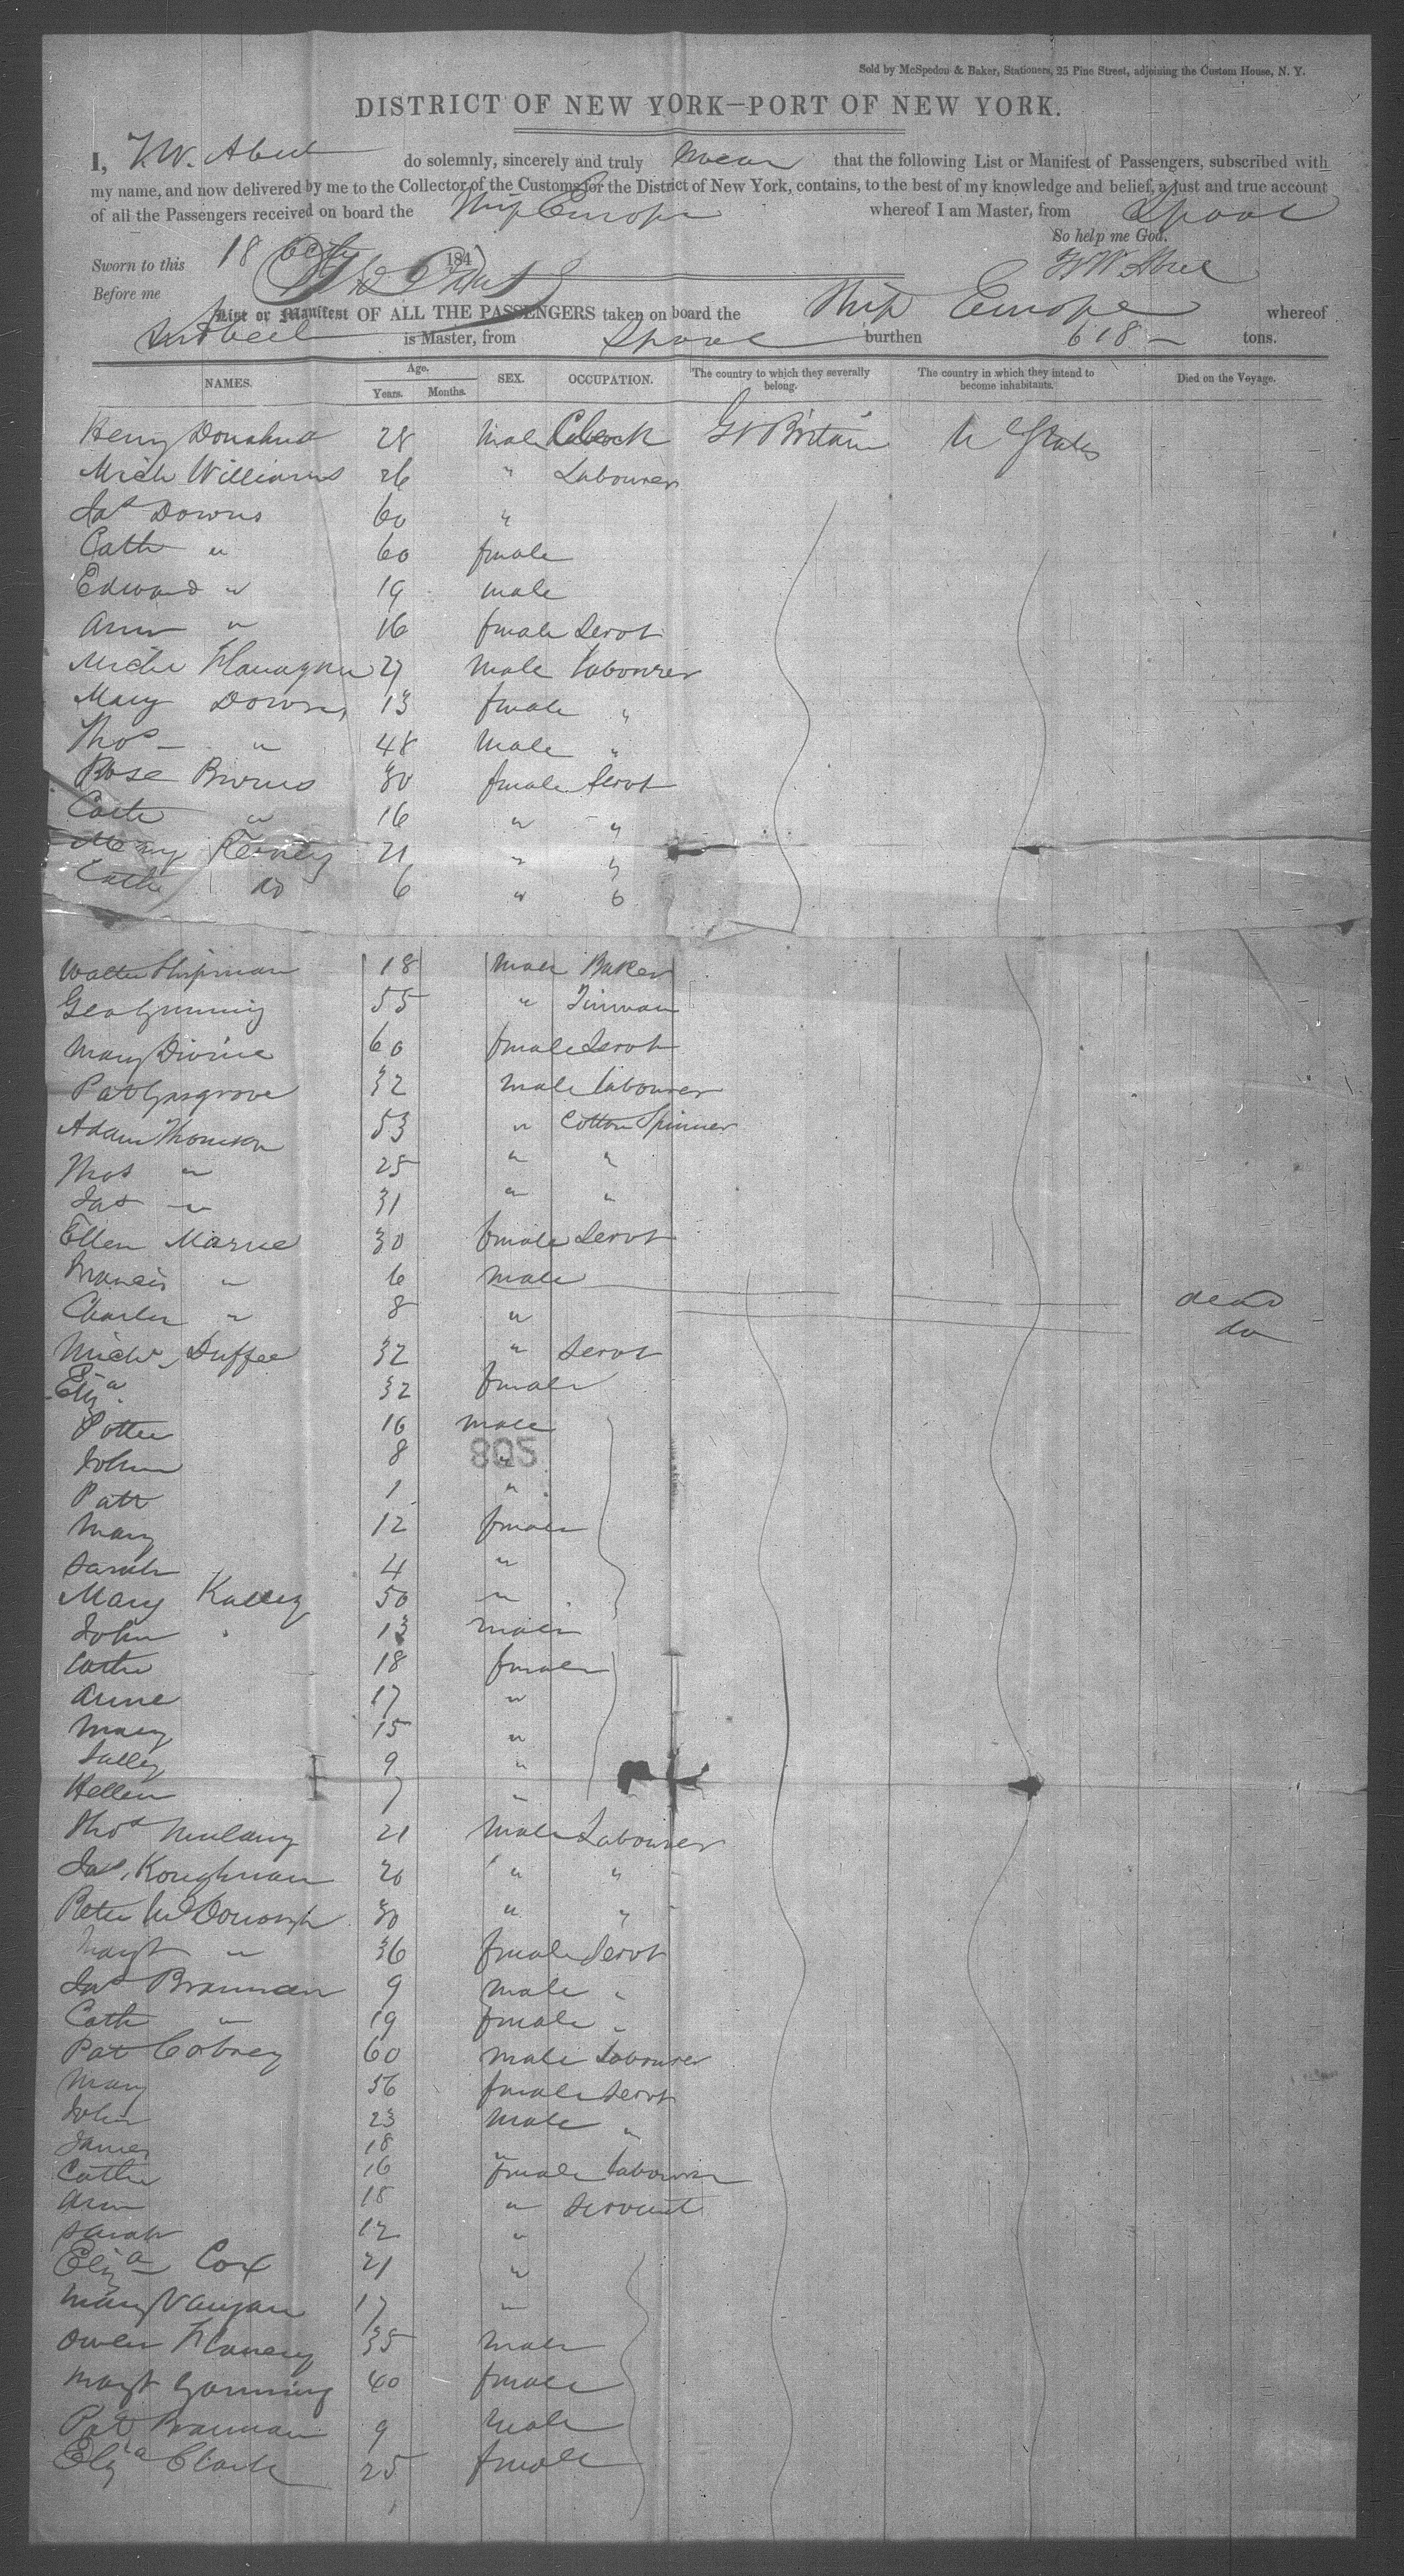 Sold by McSpedon & Baker, Stationers, 25 Pine Street, adjoining the Custom House, N. Y.
DISTRICT OF NEW YORK—PORT OF NEW YORK.
I, do solemnly, sincerely and truly swear that the following List or Manifest of Passengers, subscribed with
my name, and now delivered by me to the Collector of the Customs for the District of New York, contains, to the best of my knowledge and belief, a just and true account
of all the Passengers received on board the Ship Europe whereof I am Master, from Lpool
So help me God.
Sworn to this 18 184
Before me
List or Manifest OF ALL THE PASSENGERS taken on board the Ship Europe whereof
is Master, from Lpool burthen 618 tons.
NAMES. Age. Years. Months. SEX. OCCUPATION. The country to which they severally belong. The country in which they intend to become inhabitants. Died on the Voyage.
Henry Donahue 28 Male Clerk Gt Britain U States
Mich Williams 26 " Labourer
Jas Downs 60 "
Cath " 60 female
Edward " 19 male
Ann " 16 female Servt
Michl Flanagan 27 Male Labourer
Mary Downs 13 female "
Thos " 48 Male "
Rose Burns 30 female Servt
Cath " 16 " "
Mary 21 " "
Cath do 6 "
Walter Shipman 18 Male Baker
Geo Gunning 55 " Tinman
Mary Divine 60 female Servt
Pat Gasgrove 32 male labourer
Adam Thomson 53 " Cotton Spinner
Thos " 25 " "
Jas " 31 " "
Ellen 30 female Servt
Francis " 6 male dead
Charles " 8 " do
Michl Duffee 32 " Servt
Eliza 32 female
16 male
John 8 "
Patk 1 "
Mary 12 female
Sarah 4 "
Mary 50 "
John " 13 male
Cathe 18 female
Anne 17 "
Mary 15 "
Sally 9 "
Hellen 7 "
Thos Mulany 21 Male Labourer
Jas 20 " "
Peter McDonough 30 " "
Margt " 36 female Servt
Jas Brannan 9 male "
Cath " 19 female "
Pat 60 male Labourer
Mary 56 female Servt
John 23 Male "
James 18 "
Cathe 16 female labourer
Ann 18 " Servant
Sarah 12 "
Eliza Cox 21 "
Mary 17 "
Owen 35 male
Margt Gunning 40 female
Pat Brannan 9 Male
Eliza Clark 25 female